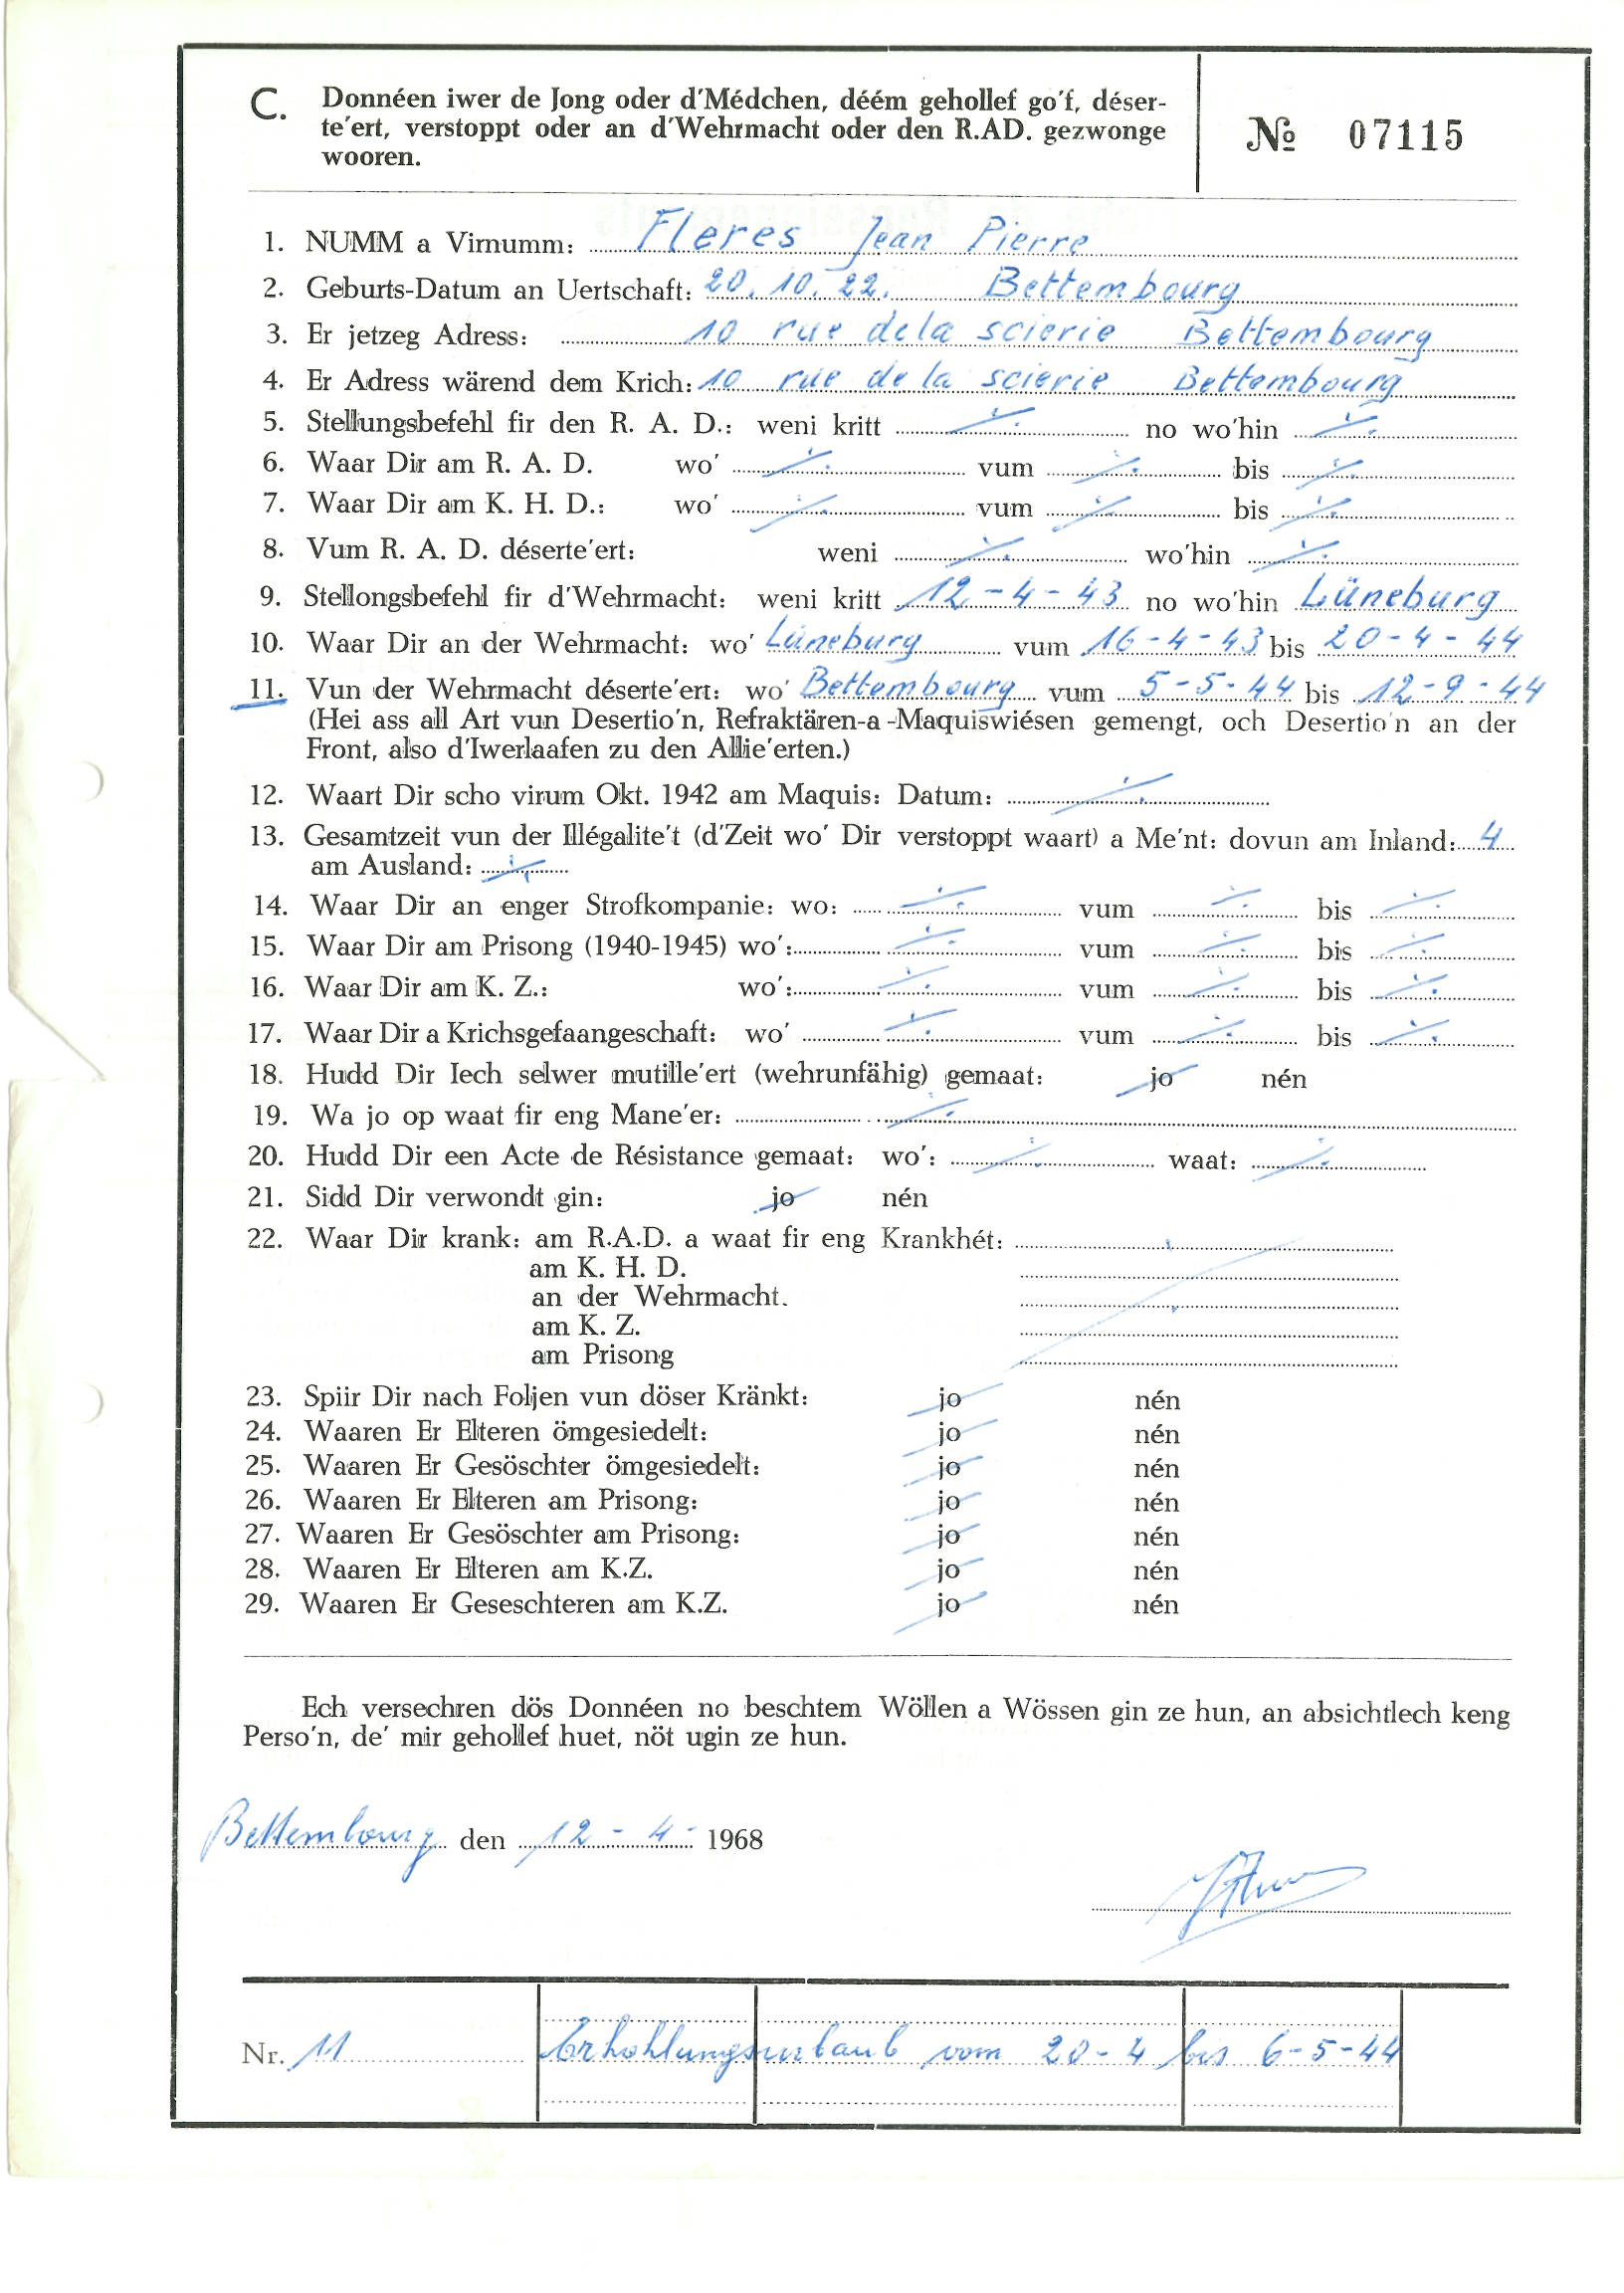 C. Donnéen iwer de Jong oder d'Médchen, déém gehollef go'f, déser-
te'ert, verstoppt oder an d'Wehrmacht oder den R.AD. gezwonge
wooren.
№ 07115
1. NUMM a Virnumm: Fleres Jean Pierre
2. Geburts-Datum an Uertschaft: 20.10.22. Bettembourg
3. Er jetzeg Adress: 10 rue de la scierie Bettembourg
4. Er Adress wärend dem Krich: 10 rue de la scierie Bettembourg
5. Stellungsbefehl fir den R. A. D.: weni kritt ÷ no wo'hin ÷
6. Waar Dir am R. A. D. wo' ÷ vum ÷ bis ÷
7. Waar Dir am K. H. D.: wo' ÷ vum ÷ bis ÷
8. Vum R. A. D. déserte'ert: weni ÷ wo'hin ÷
9. Stellongsbefehl fir d'Wehrmacht: weni kritt 12-4-43 no wo'hin Lüneburg
10. Waar Dir an der Wehrmacht: wo' Lüneburg vum 16-4-43 bis 20-4-44
11. Vun der Wehrmacht déserte'ert: wo' Bettembourg vum 5-5-44 bis 12-9-44
(Hei ass all Art vun Desertio'n, Refraktären-a-Maquiswiésen gemengt, och Desertio'n an der
Front, also d'Iwerlaafen zu den Allie'erten.)
12. Waart Dir scho virum Okt. 1942 am Maquis: Datum: ÷
13. Gesamtzeit vun der Illégalite't (d'Zeit wo' Dir verstoppt waart) a Me'nt: dovun am Inland: 4
am Ausland: ÷
14. Waar Dir an enger Strofkompanie: wo: ÷ vum ÷ bis ÷
15. Waar Dir am Prisong (1940-1945) wo': ÷ vum ÷ bis ÷
16. Waar Dir am K. Z.: wo': ÷ vum ÷ bis ÷
17. Waar Dir a Krichsgefaangeschaft: wo' ÷ vum ÷ bis ÷
18. Hudd Dir Iech selwer mutille'ert (wehrunfähig) gemaat: jo nén
19. Wa jo op waat fir eng Mane'er: ÷
20. Hudd Dir een Acte de Résistance gemaat: wo': ÷ waat: ÷
21. Sidd Dir verwondt gin: jo nén
22. Waar Dir krank: am R.A.D. a waat fir eng Krankhét: ÷
am K. H. D.
an der Wehrmacht.
am K. Z.
am Prisong
23. Spiir Dir nach Foljen vun döser Kränkt: jo nén
24. Waaren Er Elteren ömgesiedelt: jo nén
25. Waaren Er Gesöschter ömgesiedelt: jo nén
26. Waaren Er Elteren am Prisong: jo nén
27. Waaren Er Gesöschter am Prisong: jo nén
28. Waaren Er Elteren am K.Z. jo nén
29. Waaren Er Geseschteren am K.Z. jo nén
Ech versechren dös Donnéen no beschtem Wöllen a Wössen gin ze hun, an absichtlech keng
Perso'n, de' mir gehollef huet, nöt ugin ze hun.
Bettembourg den 12-4- 1968
Nr. 11 Erhohlungsurlaub vom 20-4 bis 6-5-44